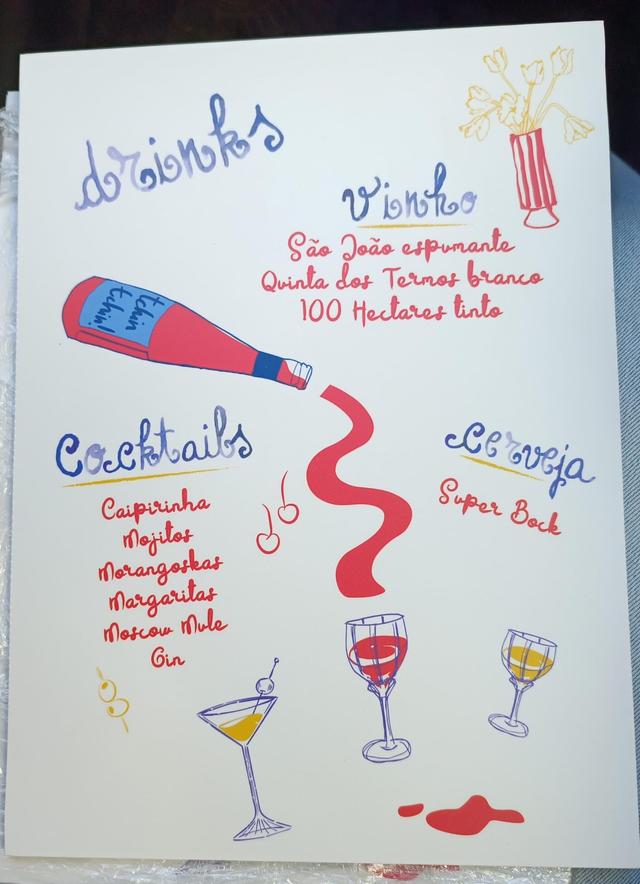 drinks
vinho
São João espumante
Quinta dos Termos branco
100 Hectares tinto
tchin
tchin!
Cocktails
Caipirinha
Mojitos
Morangoskas
Margaritas
Moscow Mule
Gin
cerveja
Super Bock